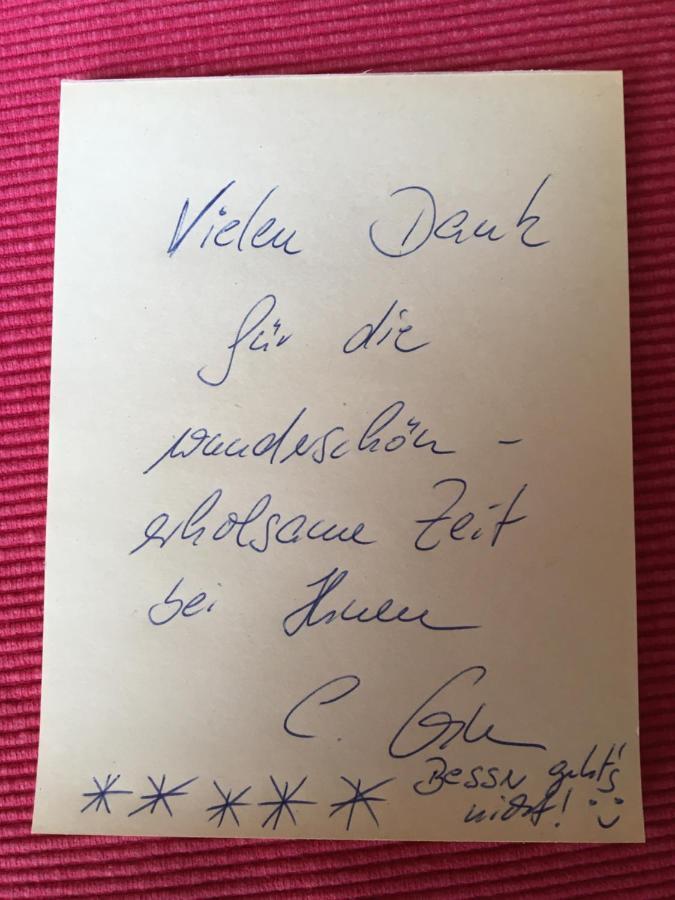 Vielen Dank
für die
wunderschön -
erholsame Zeit
bei Ihnen
C.
* * * * *
Besser geht's
nicht! :)